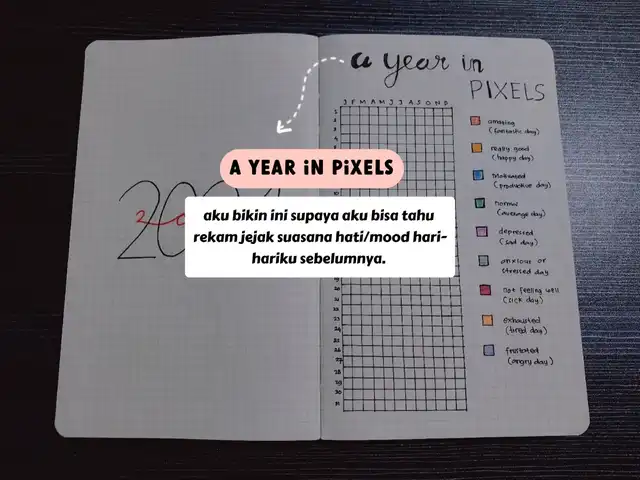 a year in
PIXELS
J F M A M J J A S O N D
A YEAR iN PiXELS
aku bikin ini supaya aku bisa tahu
rekam jejak suasana hati/mood hari-
hariku sebelumnya.
amazing
(fantastic day)
really good
(happy day)
Motivated
(productive day)
normal
(average day)
depressed
(sad day)
anxious or
stressed day
not feeling well
(sick day)
exhausted
(tired day)
frustated
(angry day)